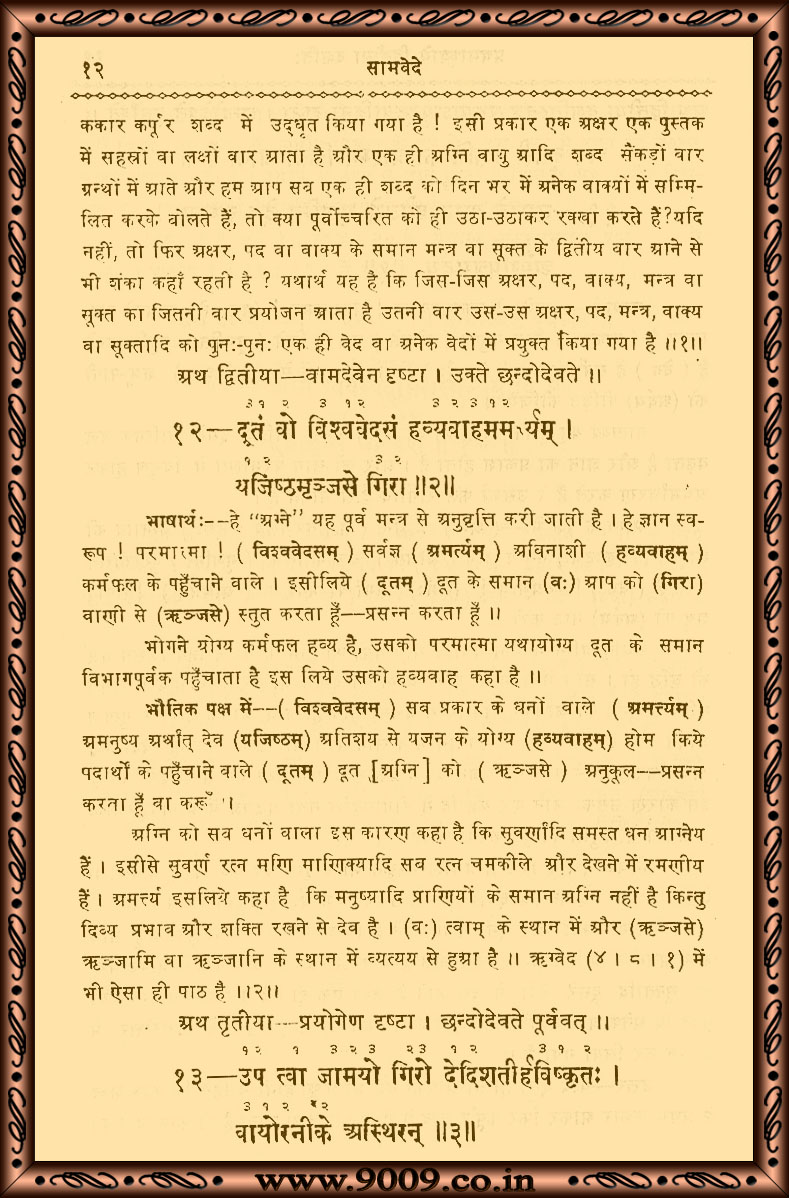 १२ सामवेदे
ककार कर्पूर शब्द में उद्धृत किया गया है ! इसी प्रकार एक अक्षर एक पुस्तक
में सहस्रों वा लक्षों वार आता है और एक ही अग्नि वायु आदि शब्द सैकड़ों वार
ग्रन्थों में आते और हम आप सब एक ही शब्द को दिन भर में अनेक वाक्यों में सम्मि-
लित करके बोलते हैं, तो क्या पूर्वोच्चरित को ही उठा-उठाकर रक्खा करते हैं?यदि
नहीं, तो फिर अक्षर, पद वा वाक्य के समान मन्त्र वा सूक्त के द्वितीय वार आने से
भी शंका कहाँ रहती है ? यथार्थ यह है कि जिस-जिस अक्षर, पद, वाक्य, मन्त्र वा
सूक्त का जितनी वार प्रयोजन आता है उतनी वार उस-उस अक्षर, पद, मन्त्र, वाक्य
वा सूक्तादि को पुनः-पुनः एक ही वेद वा अनेक वेदों में प्रयुक्त किया गया है ॥१॥
अथ द्वितीया—वामदेवेन दृष्टा । उक्ते छन्दोदेवते ॥
३१ २ ३ १२ ३ २ ३ १ २
१२—दूतं वो विश्ववेदसं हव्यवाहममर्त्यम् ।
१ २ ३ २
यजिष्ठमृञ्जसे गिरा ॥२॥
भाषार्थः--हे “अग्ने” यह पूर्व मन्त्र से अनुवृत्ति करी जाती है । हे ज्ञान स्व-
रूप ! परमात्मा ! ( विश्ववेदसम् ) सर्वज्ञ ( अमर्त्यम् ) अविनाशी ( हव्यवाहम् )
कर्मफल के पहुँचाने वाले । इसीलिये ( दूतम् ) दूत के समान (वः) आप को (गिरा)
वाणी से (ऋञ्जसे) स्तुत करता हूँ--प्रसन्न करता हूँ ॥
भोगने योग्य कर्मफल हव्य है, उसको परमात्मा यथायोग्य दूत के समान
विभागपूर्वक पहुँचाता है इस लिये उसको हव्यवाह कहा है ॥
भौतिक पक्ष में--( विश्ववेदसम् ) सब प्रकार के धनों वाले ( अमर्त्त्यम् )
अमनुष्य अर्थात् देव (यजिष्ठम्) अतिशय से यजन के योग्य (हव्यवाहम्) होम किये
पदार्थों के पहुँचाने वाले ( दूतम् ) दूत [अग्नि] को ( ऋञ्जसे ) अनुकूल--प्रसन्न
करता हूँ वा करूँ ।
अग्नि को सब धनों वाला इस कारण कहा है कि सुवर्णादि समस्त धन आग्नेय
हैं । इसीसे सुवर्ण रत्न मणि माणिक्यादि सब रत्न चमकीले और देखने में रमणीय
हैं । अमर्त्त्य इसलिये कहा है कि मनुष्यादि प्राणियों के समान अग्नि नहीं है किन्तु
दिव्य प्रभाव और शक्ति रखने से देव है । (वः) त्वाम् के स्थान में और (ऋञ्जसे)
ऋञ्जामि वा ऋञ्जानि के स्थान में व्यत्यय से हुआ है ॥ ऋग्वेद (४ । ८ । १) में
भी ऐसा ही पाठ है ॥२॥
अथ तृतीया--प्रयोगेण दृष्टा । छन्दोदेवते पूर्ववत् ॥
१२ १ ३ २ ३ २३ १ २ ३ १ २
१३—उप त्वा जामयो गिरो देदिशतीर्हविष्कृतः ।
३ १ २ २
वायोरनीके अस्थिरन् ॥३॥
www.9009.co.in